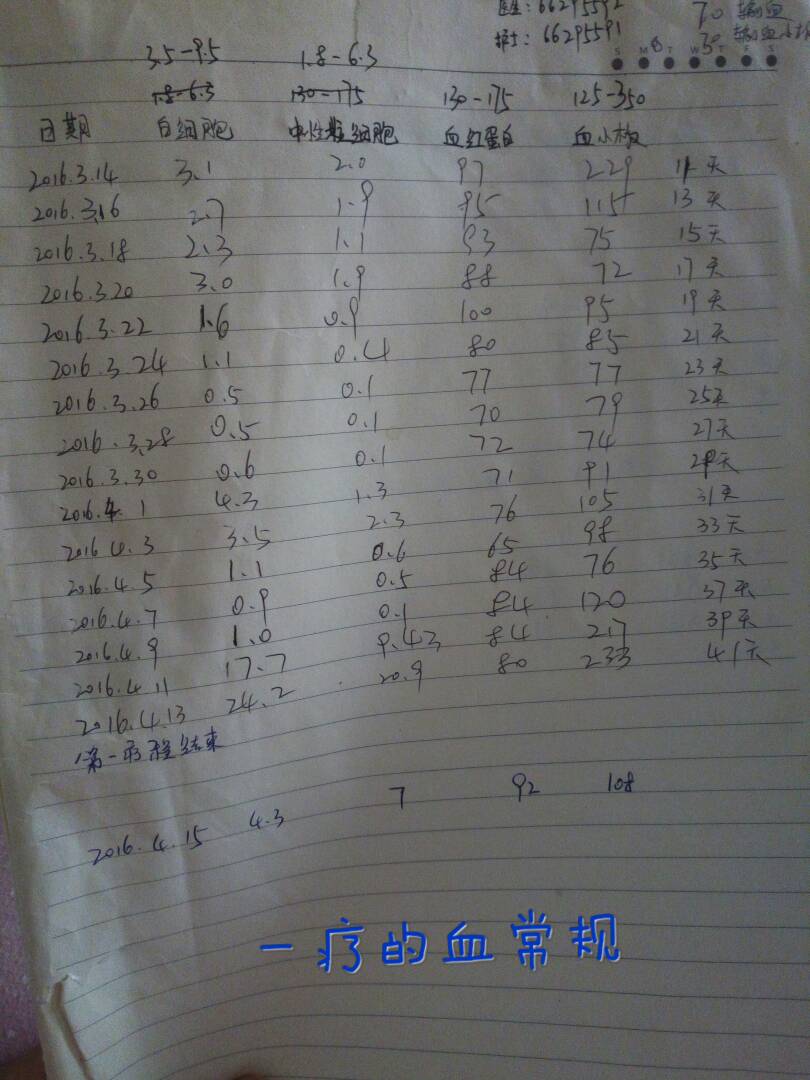 医生: 66295592 70 输血
护士: 66295591 30 输血小板
S M T W T F S
3.5-9.5 1.8-6.3
1.8-6.3 130-175 130-175 125-350
日期 白细胞 中性粒细胞 血红蛋白 血小板
2016.3.14 3.1 2.0 97 229 11天
2016.3.16 2.7 1.9 95 115 13天
2016.3.18 2.3 1.1 93 75 15天
2016.3.20 3.0 1.9 88 72 17天
2016.3.22 1.6 0.9 100 95 19天
2016.3.24 1.1 0.4 80 85 21天
2016.3.26 0.5 0.1 77 77 23天
2016.3.28 0.5 0.1 70 79 25天
2016.3.30 0.6 0.1 72 74 27天
2016.4.1 4.3 1.3 71 91 29天
2016.4.3 3.5 2.3 76 105 31天
2016.4.5 1.1 0.6 65 98 33天
2016.4.7 0.9 0.5 84 76 35天
2016.4.9 1.0 0.1 84 120 37天
2016.4.11 17.7 9.43 84 217 39天
2016.4.13 24.2 20.9 80 233 41天
第一疗程结束
2016.4.15 4.3 7 92 108
一疗的血常规